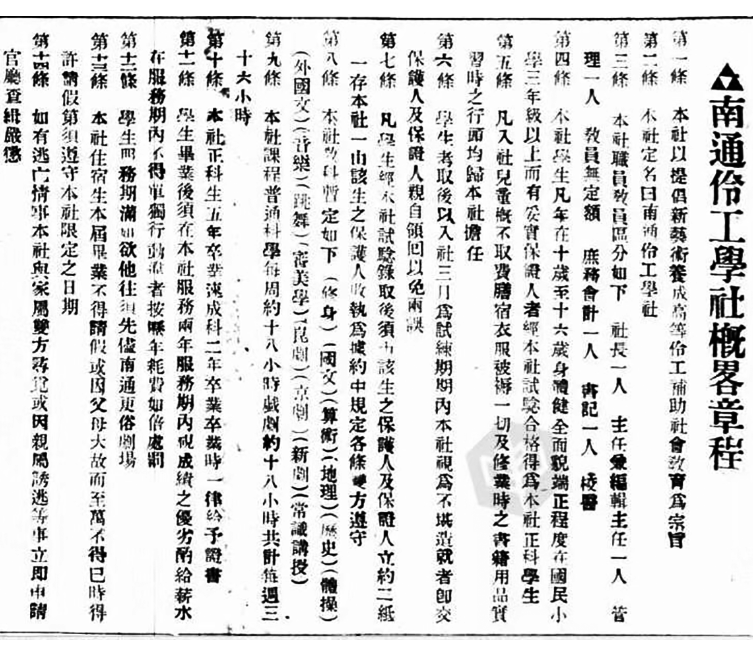 ▲南通伶工學社概畧章程
第一條　本社以提倡新藝術養成高等伶工補助社會敎育爲宗旨
第二條　本社定名曰南通伶工學社
第三條　本社職員敎員區分如下　社長一人　主任兼編輯主任一人　管
理一人　敎員無定額　庶務會計一人　書記一人　校醫
第四條　本社學生凡年在十歲至十六歲身體健全而貌端正程度在國民小
學三年級以上而有妥實保證人者經本社試驗合格得爲本社正科學生
第五條　凡入社兒童槪不取費膳宿衣服被褥一切及修業時之書籍用品實
習時之行頭均歸本社擔任
第六條　學生考取後以入社三月爲試練期期內本社視爲不堪造就者卽交
保護人及保證人親自領囘以免兩誤
第七條　凡學生經本社試驗錄取後須由該生之保護人及保證人立約二紙
一存本社一由該生之保護人收執爲據約中規定各條雙方遵守
第八條　本社敎科暫定如下（修身）（國文）（算術）（地理）（歷史）（體操）
（外國文）（音樂）（跳舞）（審美學）（崑劇）（京劇）（新劇）（常識講授）
第九條　本社課程普通科學每周約十八小時戲劇約十八小時共計每週三
十六小時
第十條　本社正科生五年卒業速成科二年卒業卒業時一律給予證書
第十一條　學生畢業後須在本社服務兩年服務期內視成績之優劣酌給薪水
在服務期內不得單獨行動違者按歷年耗費加倍處罰
第十二條　學生服務期滿如欲他往須先儘南通更俗劇場
第十三條　本社住宿生本屆畢業不得請假或因父母大故而至萬不得已時得
許請假第須遵守本社限定之日期
第十四條　如有逃亡情事本社與家屬雙方尋覓或因親屬誘逃等事立卽申請
官廳查緝嚴懲